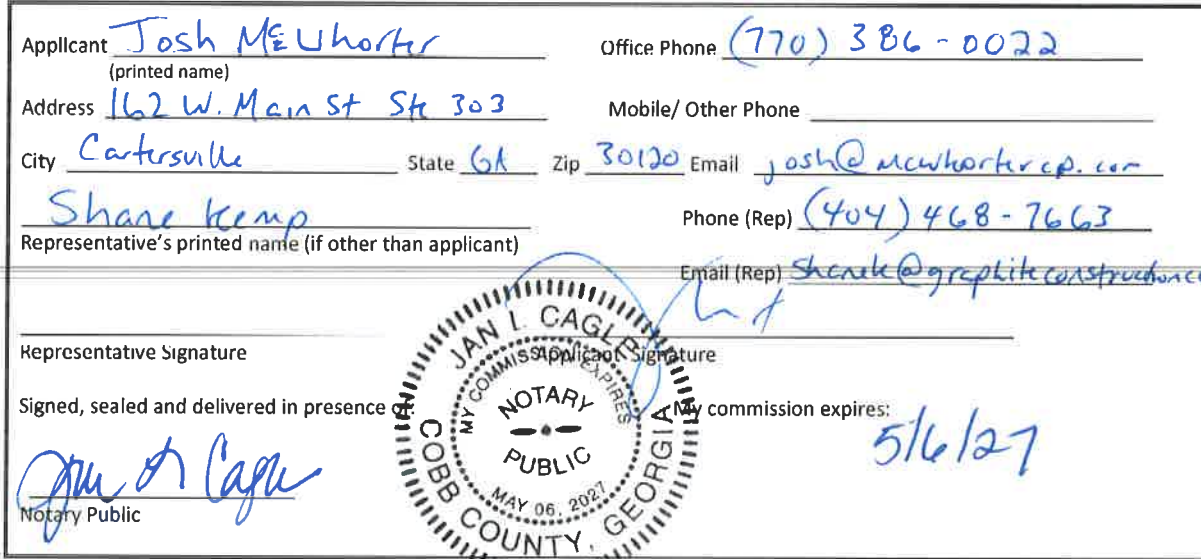 Applicant Josh McWhorter Office Phone (770) 386-0022
(printed name)
Address 162 W. Main St Ste 303 Mobile/ Other Phone
City Cartersville State GA Zip 30120 Email josh@mcwhortercp.com
Shane Kemp Phone (Rep) (404) 468-7663
Representative's printed name (if other than applicant)
Email (Rep) Shanek@graphiteconstructionc
Representative Signature Applicant Signature
Signed, sealed and delivered in presence My commission expires:
5/6/27
Jan L Cagle
Notary Public
JAN L. CAGLE
MY COMMISSION EXPIRES
NOTARY
PUBLIC
MAY 06, 2027
COBB COUNTY, GEORGIA